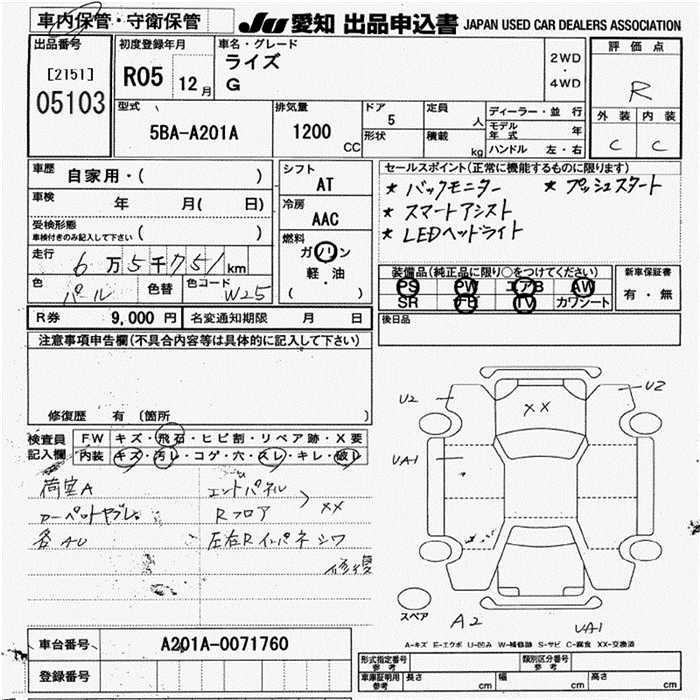 車内保管・守衛保管
JU 愛知 出品申込書 JAPAN USED CAR DEALERS ASSOCIATION
出品番号
[2151]
05103
初度登録年月
R05 12 月
車名・グレード
ライズ
G
2WD
・
4WD
評価点
R
外装 内装
C C
型式
5BA-A201A
排気量
1200 CC
ドア
5
形状
定員 人
積載 kg
ディーラー・並行
モデル年式 年
ハンドル 左・右
車歴 自家用・( )
車検 年 月( 日)
受検形態
車検付きのみ記入して下さい ( )
走行 6万5千751km
色 パール 色替 色コード W25
シフト
AT
冷房
AAC
燃料
ガソリン
軽・油
( )
セールスポイント(正常に機能するものに限ります)
★ バックモニター ★ プッシュスタート
★ スマートアシスト
★ LEDヘッドライト
装備品(純正品に限り○をつけてください)
PS PW エアB AW
SR ナビ TV カワシート
新車保証書
有・無
R券 9,000 円 名変通知期限 月 日
後日品
注意事項申告欄(不具合内容等は具体的に記入して下さい)
修復歴 有(箇所 )
検査員記入欄
FW キズ・飛石・ヒビ割・リペア跡・X要
内装 キズ・汚レ・コゲ・穴・スレ・キレ・破レ
荷室A
カーペットヤブレ
各AU
エンドパネル
Rフロア XX
左右Rインパネ シワ
修復
U2
U2
XX
UA1
スペア
A2
UA1
A-キズ E-エクボ U-凹み W-補修跡 S-サビ C-腐食 XX-交換済
車台番号 A201A-0071760
登録番号
形式指定番号 参考
類別区分番号 参考
車庫証明用 参考 長さ cm 幅 cm 高さ cm